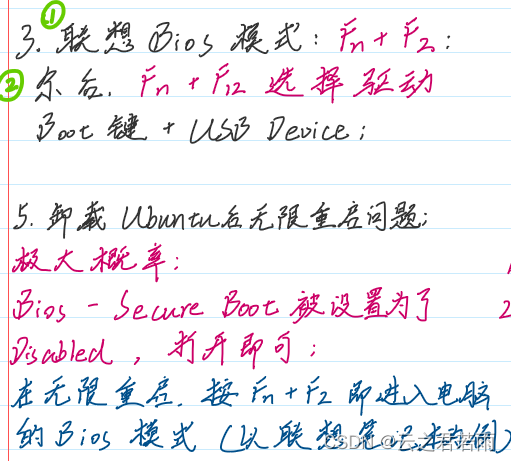 ①
3. 联想 Bios 模式: Fn + F2;
② 尔后, Fn + F12 选择驱动
Boot 键 + USB Device;
5. 卸载 Ubuntu后无限重启问题;
极大概率:
Bios - Secure Boot 被设置为了
2
Disabled, 打开即可;
在无限重启, 按 Fn + F2 即进入电脑
的 Bios 模式 (以联想 为例)
CSDN @云之君若雨